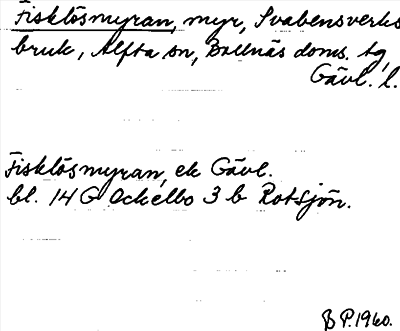 Fisklösmyran, myr, Svabensverks
bruk, Alfta sn, Bollnäs doms. tg
Gävl. l.
Fisklösmyran, ek Gävl.
bl. 14 G Ockelbo 3 b Rotsjön.
B P. 1960.